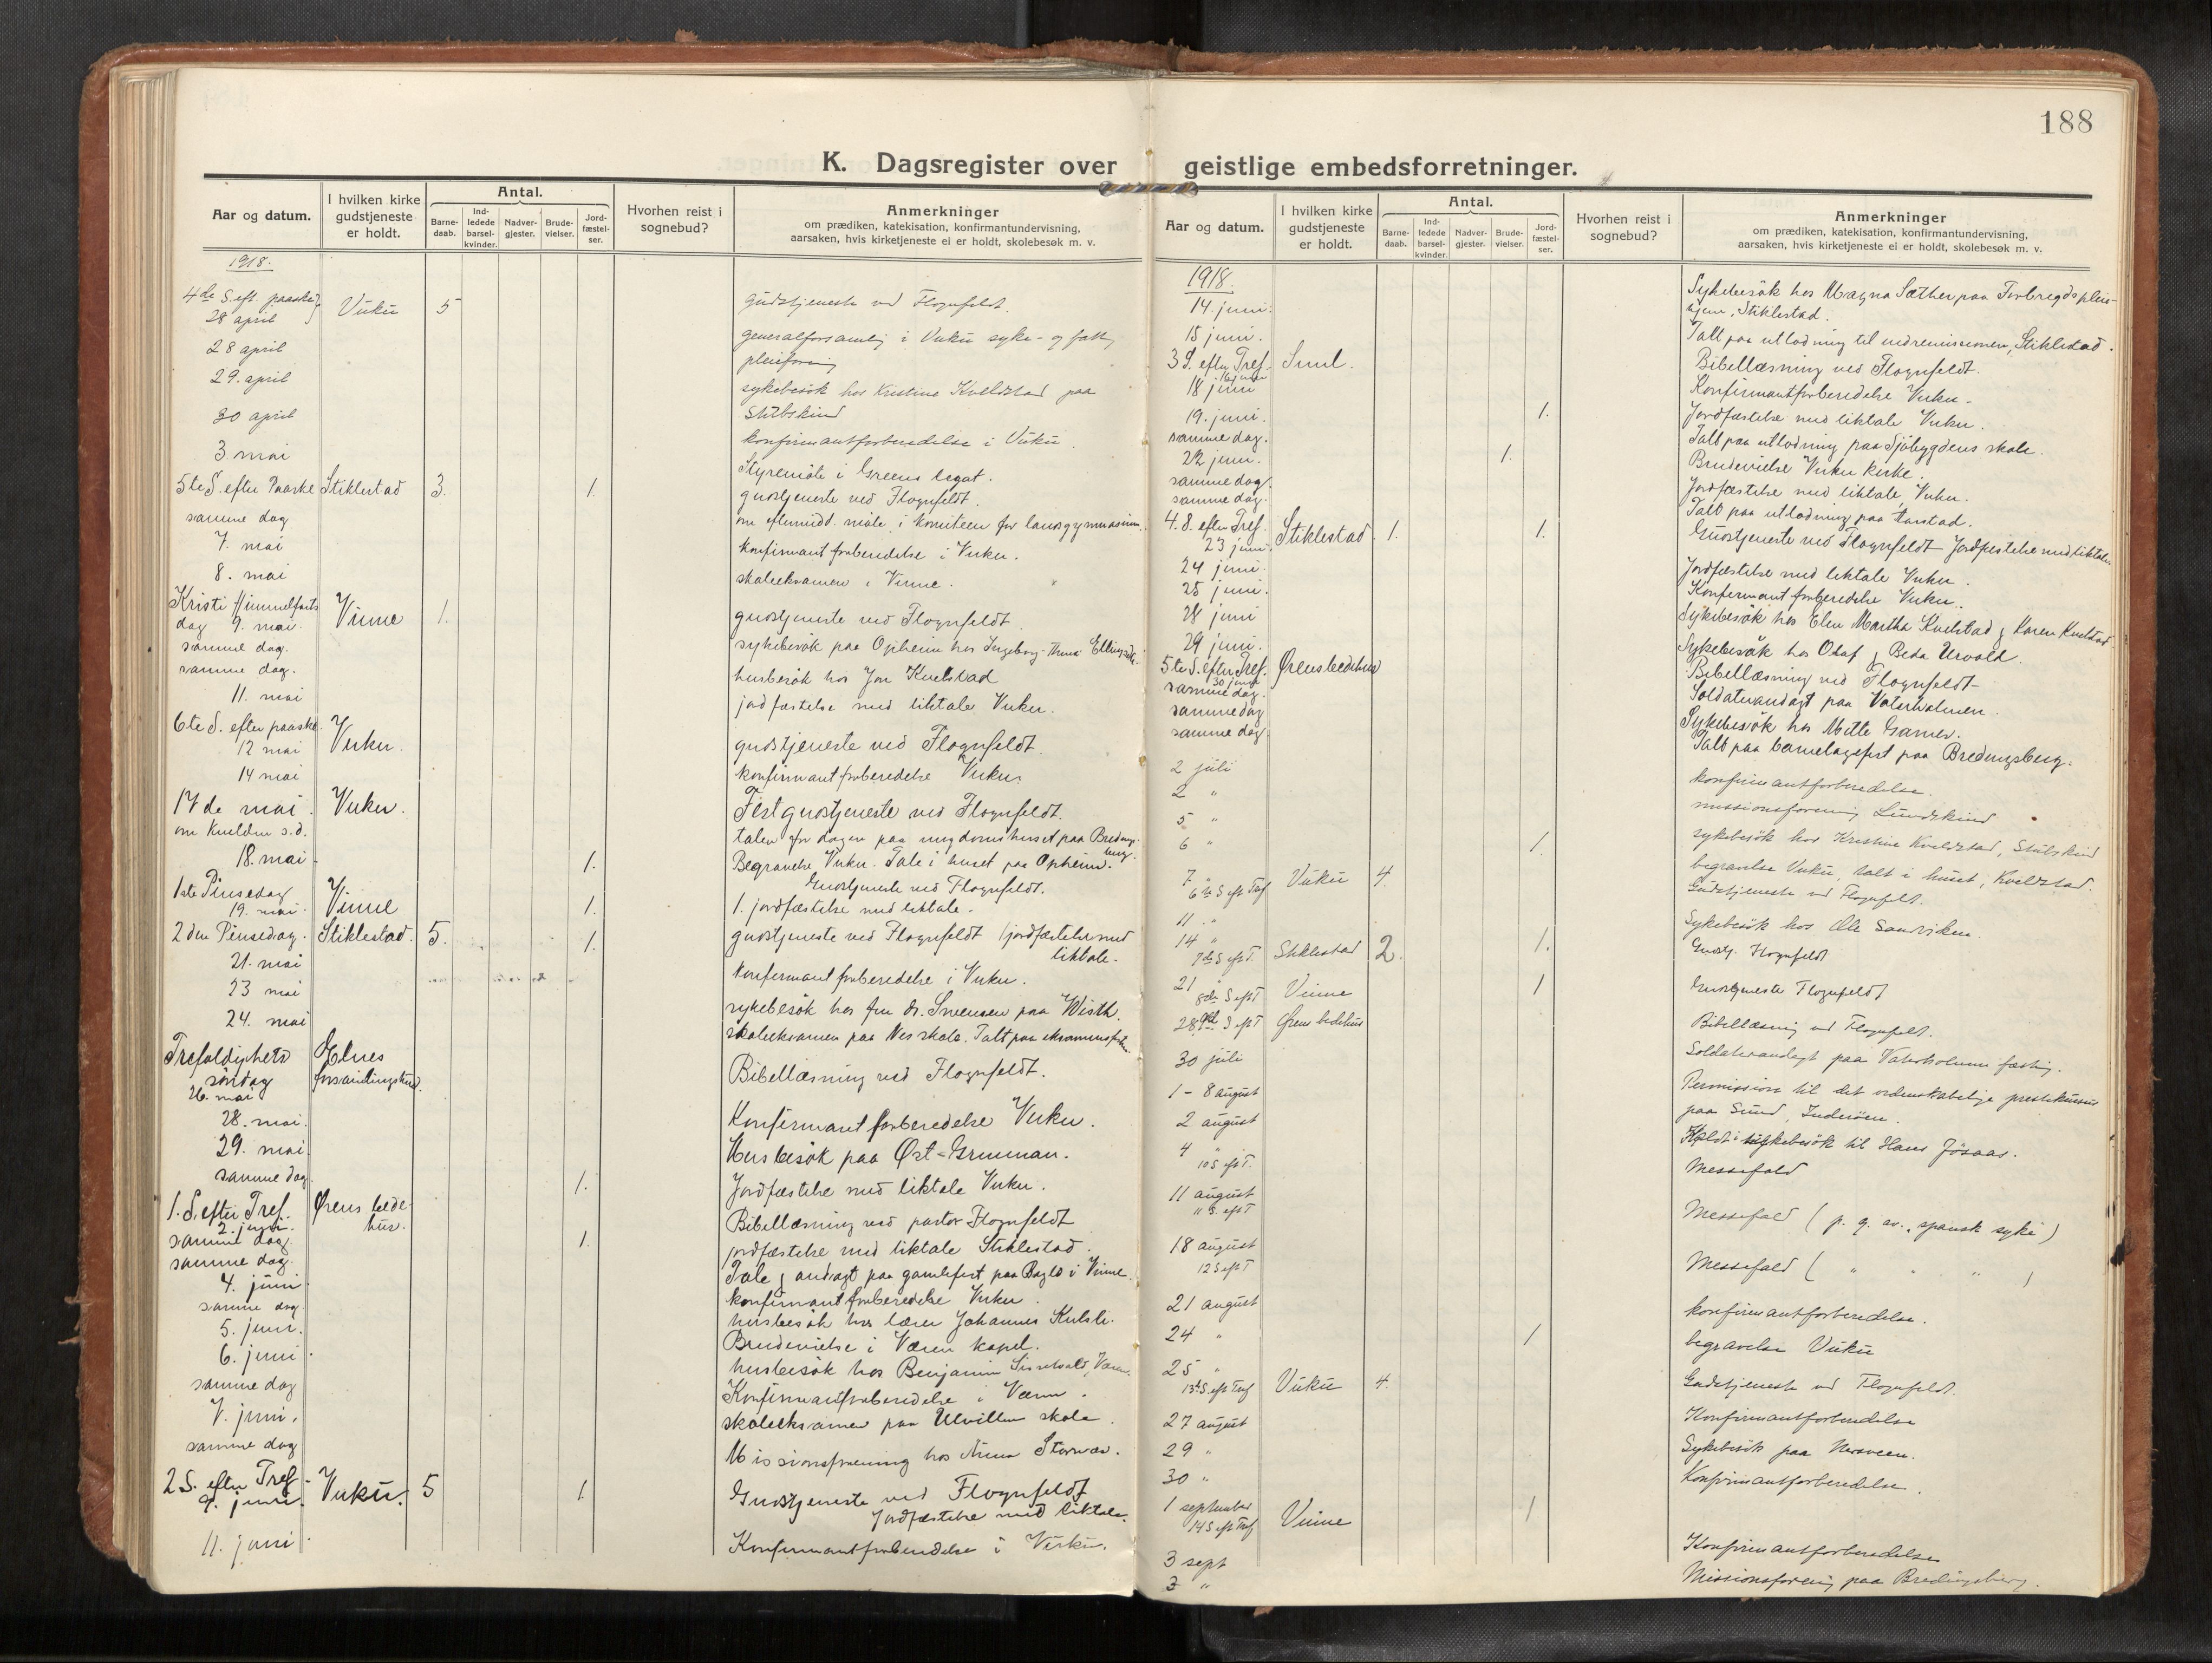 188
K. Dagsregister over geistlige embedsforretninger.
Aar og datum. I hvilken kirke gudstjeneste er holdt. Antal. Barne-daab. Ind-ledede barsel-kvinder. Nadver-gjester. Brude-vielser. Jord-fæstel-ser. Hvorhen reist i sognebud? Anmerkninger om prædiken, katekisation, konfirmantundervisning, aarsaken, hvis kirketjeneste ei er holdt, skolebesøk m. v.
1918.
4de S. eft. paaske 28 april Vuku 5 gudstjeneste ved Flognfeldt.
28 april generalforsamling i Vuku syke- og
pleieforening
29. april sykebesök hos Kristine Kveldstad paa
Stubskind
30 april konfirmantforberedelse i Vuku.
3. mai Styremöte i Greens legat.
5te S. efter Paaske Stiklestad 3. 1. gudstjeneste ved Flognfeldt.
samme dag om eftermidd. möte i komiteen for landsgymnasium.
7. mai konfirmantforberedelse i Vuku.
8. mai skoleeksamen i Vinne.
Kristi Himmelfarts
dag 9. mai. Vinne 1. gudstjeneste ved Flognfeldt.
samme dag. sykebesök paa Opheim hos Ingeborg Anna
samme dag. husbesök hos Jon Kvelstad
11. mai jordfæstelse med liktale Vuku.
6te S. efter paaske
12 mai Vuku. gudstjeneste ved Flognfeldt.
14 mai konfirmantforberedelse Vuku.
17de mai. Vuku. Festgudstjeneste ved Flognfeldt.
om kvelden s.d. talen for dagen paa ungdomshuset paa Bredings-
berg.
18. mai 1. Begravelse Vuku. Tale i huset paa Opheim.
1ste Pinsedag
19. mai. Vinne 1. Gudstjeneste ved Flognfeldt.
1. jordfæstelse med liktale.
2den Pinsedag. Stiklestad. 5. 1. gudstjeneste ved Flognfeldt (jordfæstelse med
liktale.
21. mai konfirmantforberedelse i Vuku.
23 mai sykebesök hos fru dr. Svensen paa Wisth.
24. mai skoleeksamen paa Nes skole. Talt paa
Trefoldighets
søndag
26. mai Elnes
forsamlingshus. Bibellæsning ved Flognfeldt.
28. mai. Konfirmantforberedelse Vuku.
29. mai. Husbesök paa Øst-Grunnan.
samme dag 1. Jordfæstelse med liktale Vuku.
1. S. efter Tref.
2. juni. Ørens bede-
hus. Bibellæsning ved pastor Flognfeldt
samme dag. 1. jordfæstelse med liktale Stiklestad.
samme dag. Tale & andagt paa gamlefest paa i Vinne.
4. juni konfirmantforberedelse Vuku.
samme dag. husbesök hos lærer Johannes Kulsli.
5. juni. Brudevielse i Væren kapel.
6. juni. husbesök hos Benjamin
samme dag Konfirmantforberedelse i Væren.
7. juni. skoleeksamen paa Ulvillen skole.
samme dag Missionsforening hos Anna
2 S. efter Tref.
9. juni. Vuku. 5 1. Gudstjeneste ved Flognfeldt
Jordfæstelse med liktale.
11. juni. Konfirmantforberedelse i Vuku.
Aar og datum. I hvilken kirke gudstjeneste er holdt. Antal. Barne-daab. Ind-ledede barsel-kvinder. Nadver-gjester. Brude-vielser. Jord-fæstel-ser. Hvorhen reist i sognebud? Anmerkninger om prædiken, katekisation, konfirmantundervisning, aarsaken, hvis kirketjeneste ei er holdt, skolebesøk m. v.
1918.
14. juni. Sykebesök hos Magna Sæther paa Forbregds pleie-
hjem, Stiklestad.
15 juni. Talt paa utlodning til indremissionen, Stiklestad.
3 S. efter Tref.
16 juni Suul. Bibellæsning ved Flognfeldt.
18 juni Konfirmantforberedelse Vuku.
19. juni. 1. Jordfæstelse med liktale Vuku.
samme dag. Talt paa utlodning paa Sjöbygdens skole.
22 juni. 1. Brudevielse Vuku kirke.
samme dag. Jordfæstelse med liktale, Vuku.
samme dag. Talt paa utlodning paa
4. S. efter Tref.
23 juni. Stiklestad. 1. 1. Gudstjeneste ved Flognfeldt Jordfæstelse med liktale.
24 juni. Jordfæstelse med liktale Vuku.
25 juni. Konfirmantforberedelse Vuku.
28 juni Sykebesök hos Elen Martha Kvelstad & Karen Kvelstad
29 juni. Sykebesök hos Olaf & Beda Urvold.
5te S. efter Tref.
30 juni Ørens bedehus Bibellæsning ved Flognfeldt
samme dag. Soldaterandagt paa Vaterholmen.
samme dag Sykebesök hos Mette Garnes.
samme dag Talt paa barnelagsfest paa Bredingsberg.
2 juli konfirmantforberedelse.
2 " missionsforening Lundskind
5 " sykebesök hos Kristine Kveldstad, Stubskind
6 " 1. begravelse Vuku, talt i huset, Kveldstad.
7 "
6te S eft Tref Vuku 4. Gudstjeneste ved Flognfeldt.
11. " Sykebesök hos Ole Sandviken
14 "
7de S eft T. Stiklestad 2. 1. Gudstj. Flognfeldt
21 "
8de S eft T Vinne 1 Gudstjeneste Flognfeldt
28.
9de S eft T Ørens bedehus Bibellæsning ved Flognfeldt.
30 juli Soldaterandagt paa Vaterholmens fæstning.
1 - 8 august Permission til det videnskabelige prestekursus
paa Sund, Inderöen.
2 august sykebesök til Hans Jösaas.
4 "
10 S eft T. Messefald
11 august
11 S. eft T Messefald (p. g. av "spansk syke)
18 august
12 S eft T Messefald ( " " " )
21 august konfirmantforberedelse.
24 " 1 begravelse Vuku
25 "
13de S. eft Tref Vuku 4. Gudstjeneste ved Flognfeldt.
27 august Konfirmantforberedelse
29 " Sykebesök paa
30 " Konfirmantforberedelse.
1 september
14 S eft Tref Vinne 1
3 sept Konfirmantforberedelse
3 " Missionsforening paa Bredingsberg.